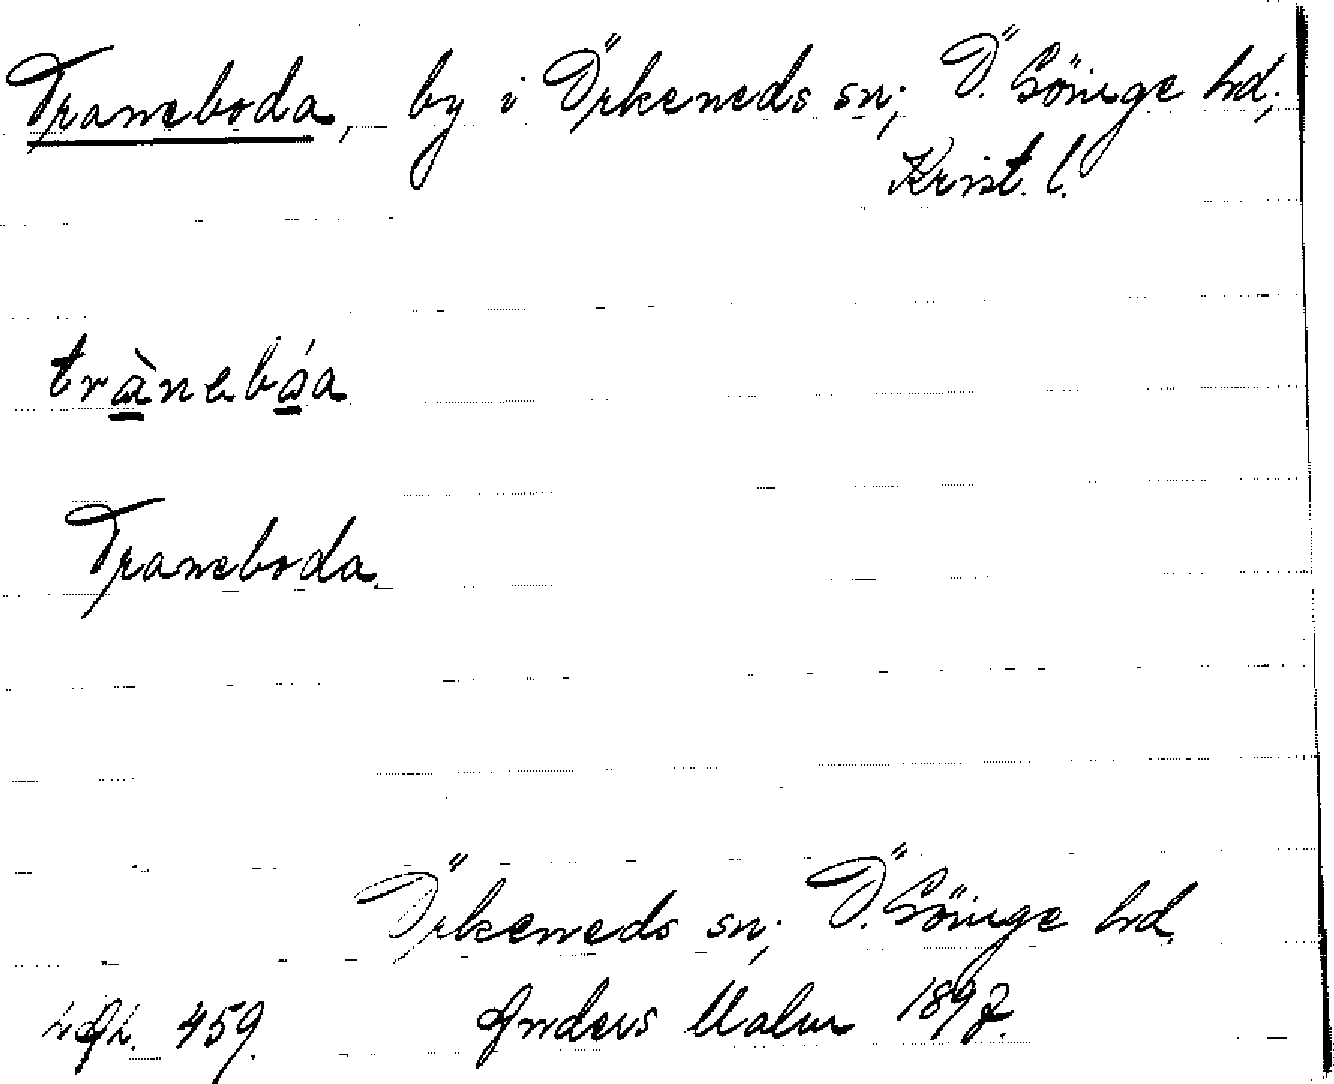 Traneboda, by i Örkeneds sn; Ö. Göinge hd;
Krist. l.
trànebáa
Traneboda.
Örkeneds sn; Ö. Göinge hd.
459. Anders Malm 1897.